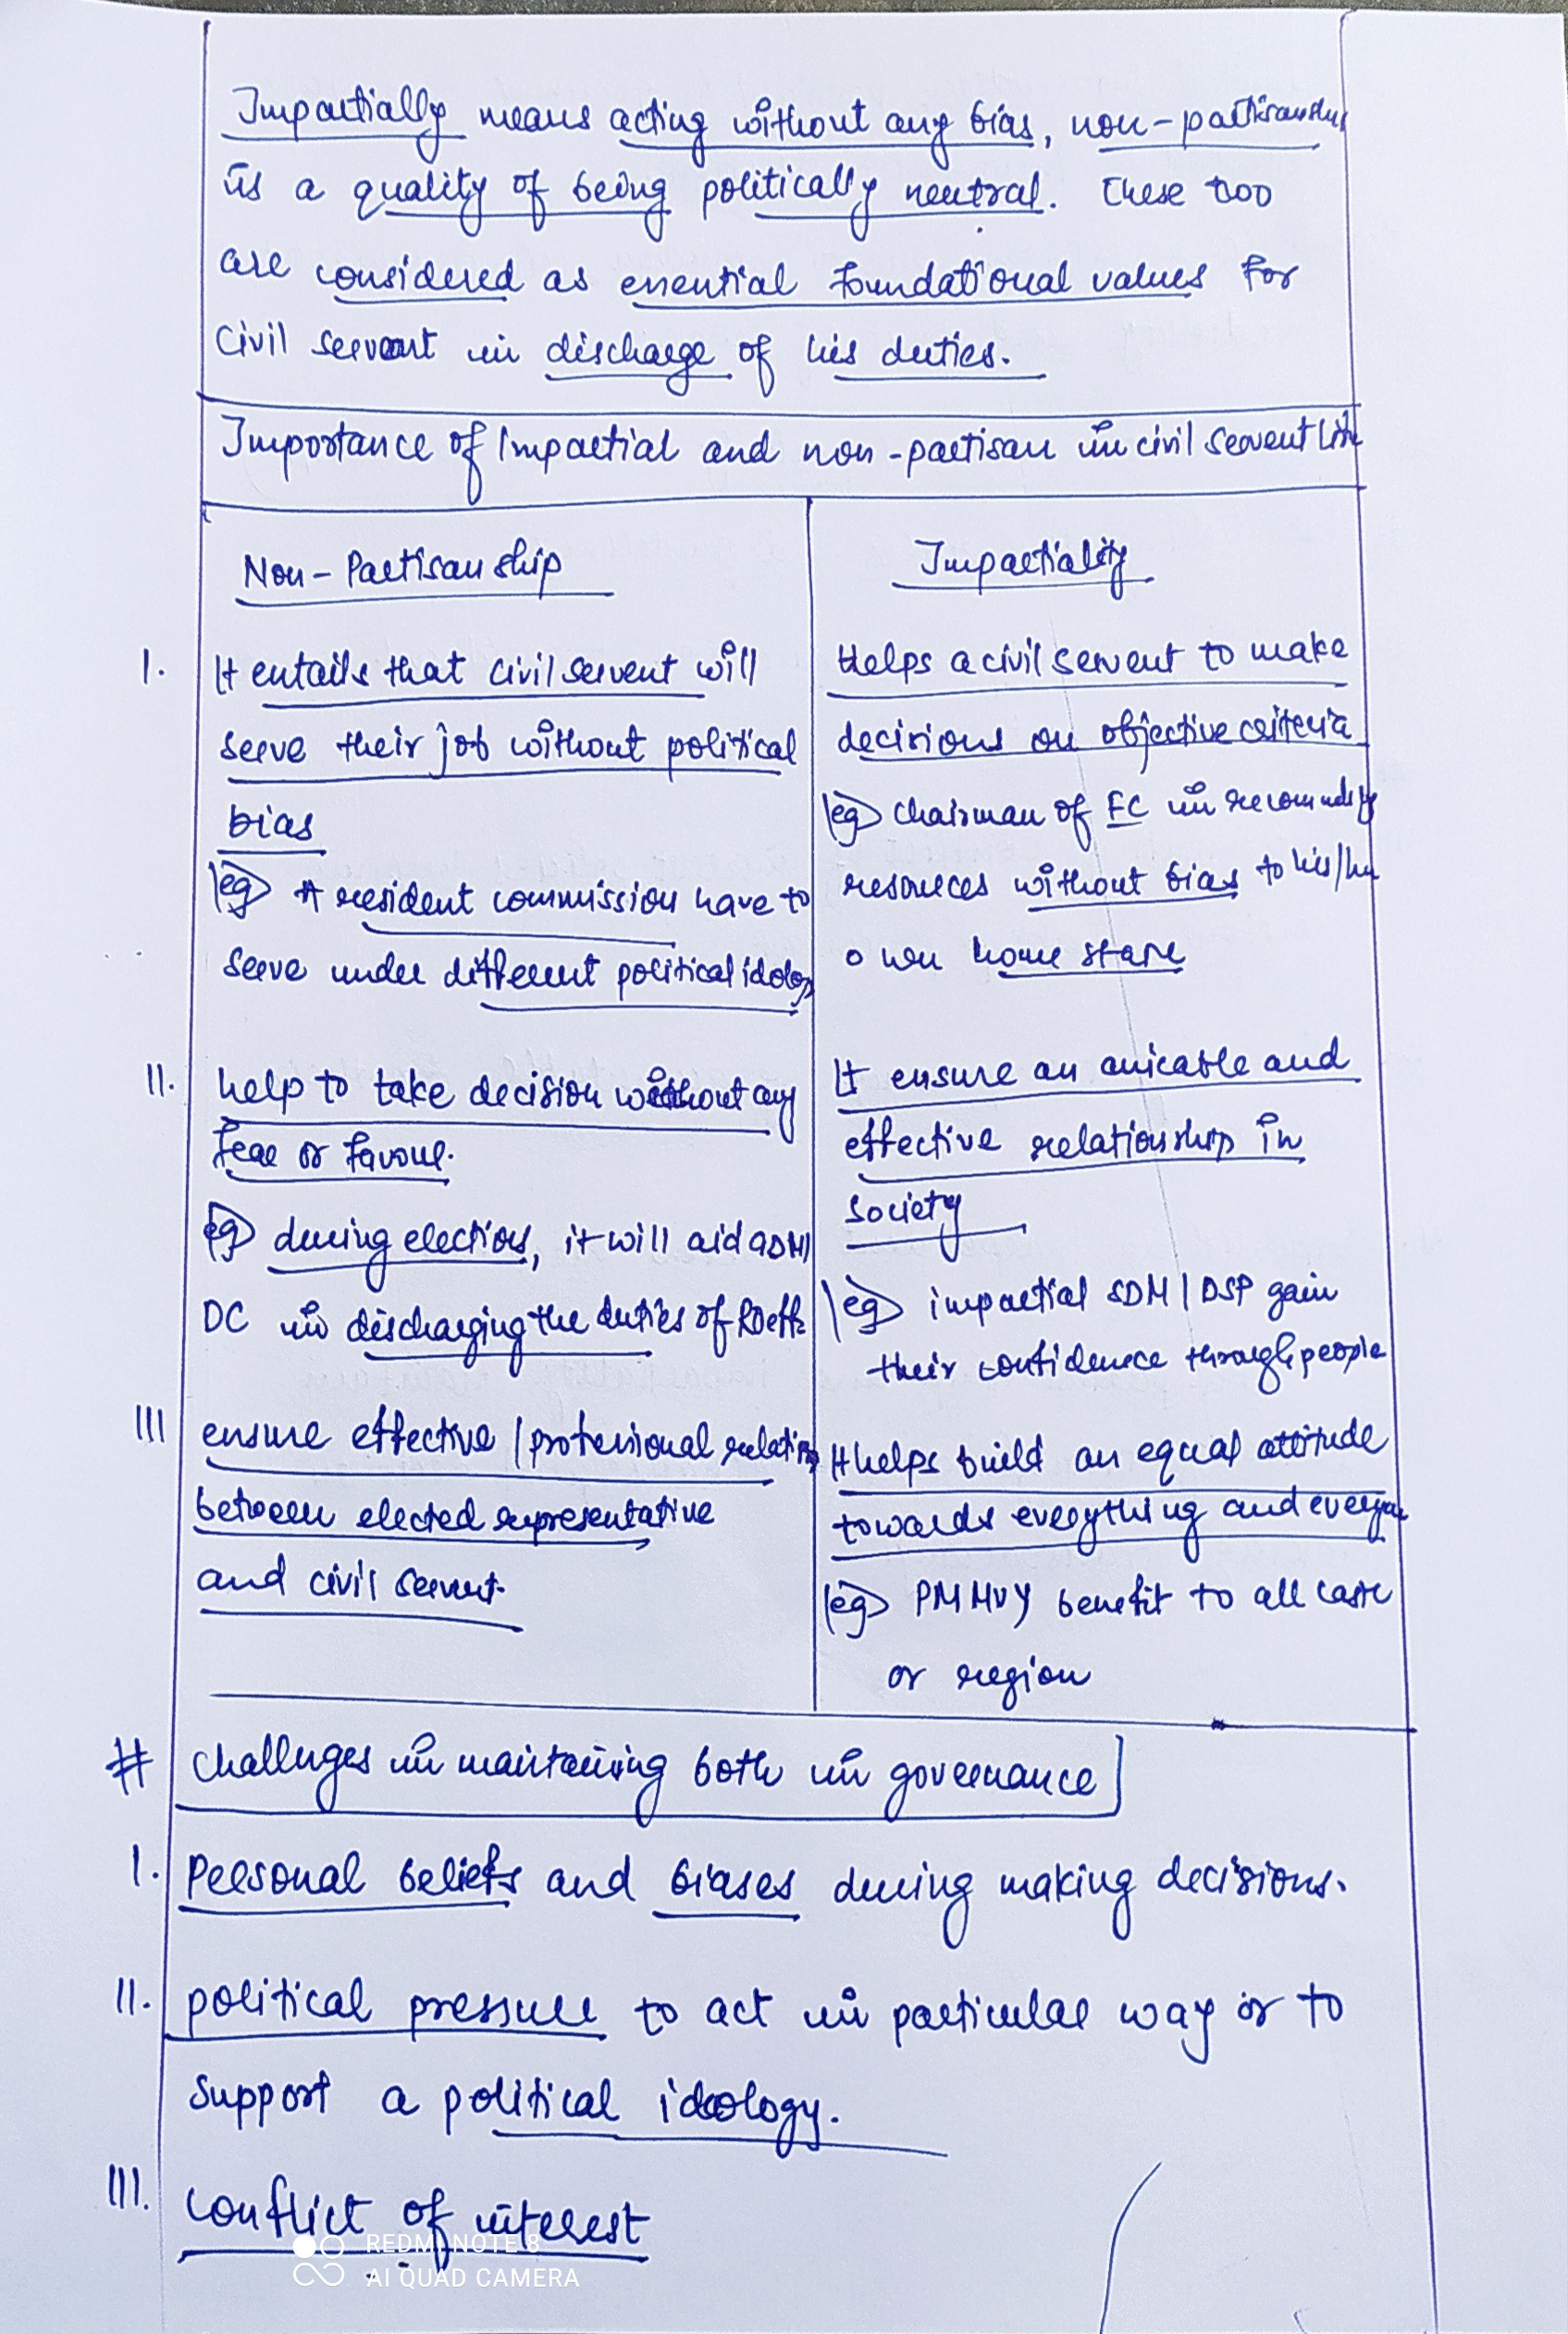 Impartially means acting without any bias, non-partisanship
is a quality of being politically neutral. These two
are considered as essential foundational values for
civil servant in discharge of his duties.
Importance of Impartial and non-partisan in civil servent
Non-Partisanship
I. It entails that civil servent will
serve their job without political
bias
eg A resident commission have to
serve under different political
II. help to take decision without any
fear or favour.
eg during elections, it will aid
DC in discharging the duties of
III ensure effective / professional
between elected representative
and civil servent.
Impartiality
Helps a civil servent to make
decisions on objective criteria
eg chairman of FC in
resources without bias to his/her
own home state
It ensure an amicable and
effective relationship in
society
eg impartial SDM / DSP gain
their confidence through people
It helps build an equal attitude
towards everything and
eg PMMVY benefit to all caste
or region
# Challenges in maintaining both in governance
I. Personal beliefs and biases during making decisions.
II. political pressure to act in particular way or to
support a political ideology.
III. conflict of interest
REDMI NOTE 8
AI QUAD CAMERA